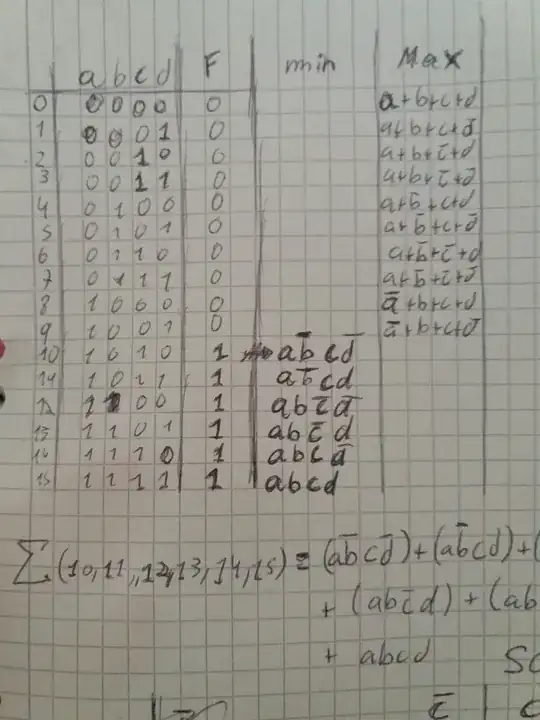 a b c d F min Max
0 0 0 0 0 0 a+b+c+d
1 0 0 0 1 0 a+b+c+d̅
2 0 0 1 0 0 a+b+c̅+d
3 0 0 1 1 0 a+b+c̅+d̅
4 0 1 0 0 0 a+b̅+c+d
5 0 1 0 1 0 a+b̅+c+d̅
6 0 1 1 0 0 a+b̅+c̅+d
7 0 1 1 1 0 a+b̅+c̅+d̅
8 1 0 0 0 0 a̅+b+c+d
9 1 0 0 1 0 a̅+b+c+d̅
10 1 0 1 0 1 ab̅cd̅
11 1 0 1 1 1 ab̅cd
12 1 1 0 0 1 abc̅d̅
13 1 1 0 1 1 abc̅d
14 1 1 1 0 1 abcd̅
15 1 1 1 1 1 abcd
∑(10,11,,12,13,14,15) = (ab̅cd̅)+(ab̅cd)+(
+ (abc̅d) + (ab
+ abcd
c̅